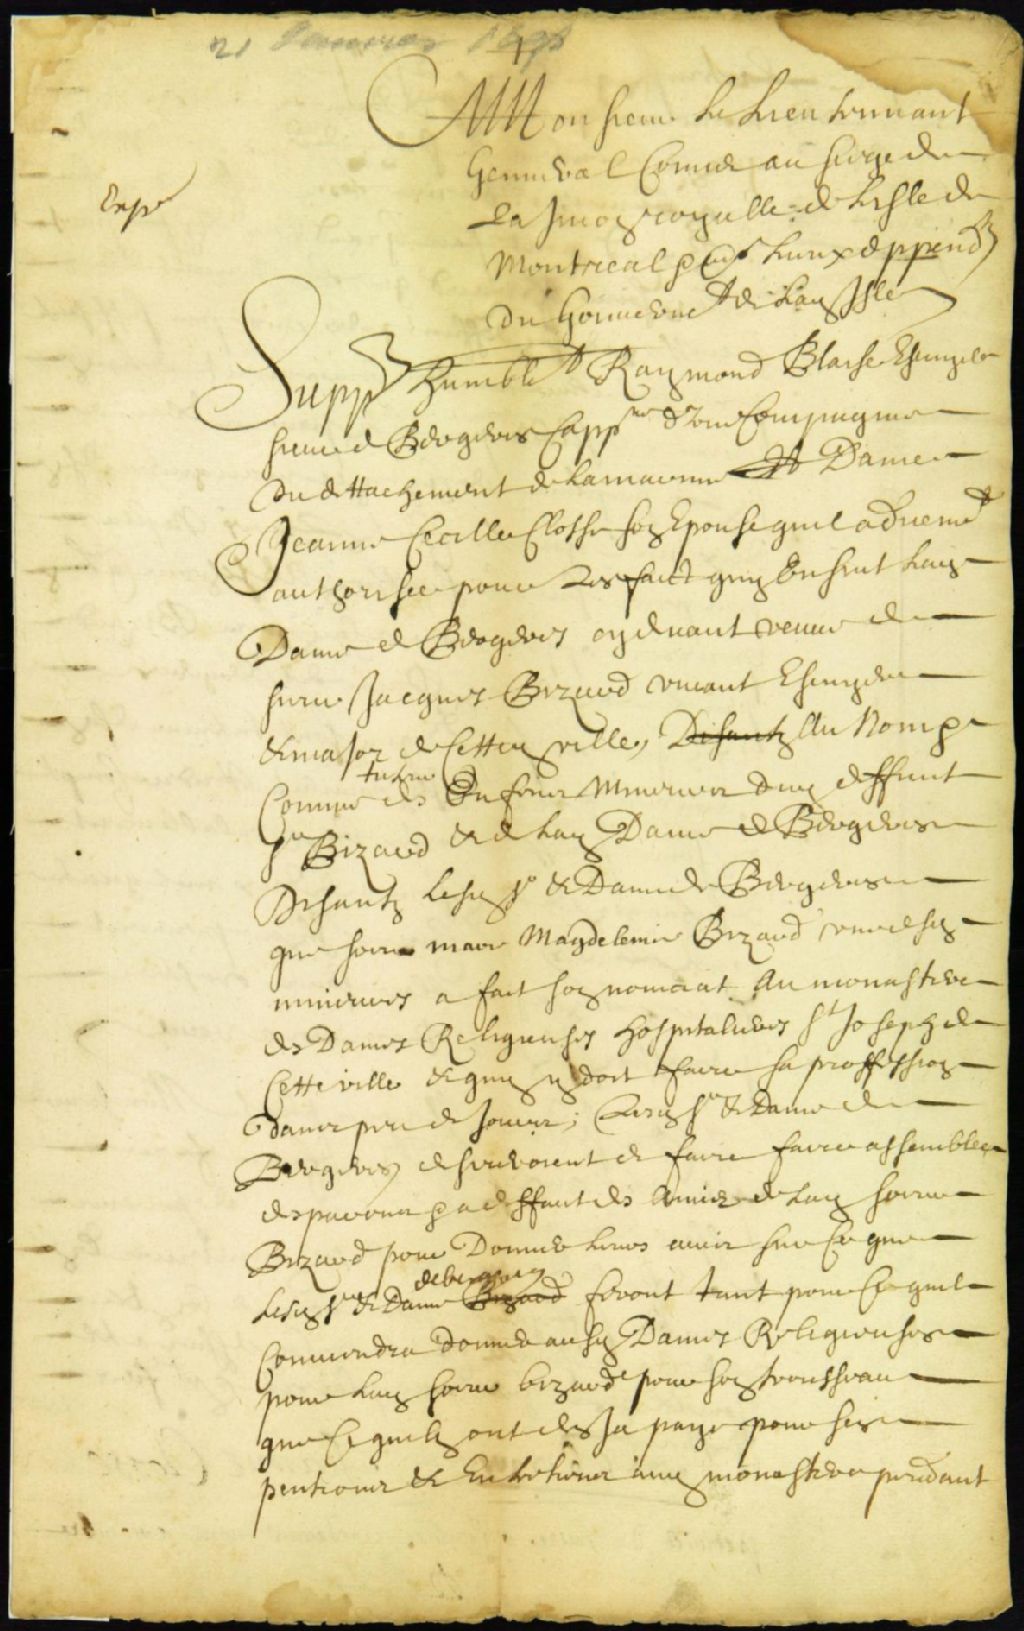 21 Janvier 1696
A Monsieur le Lieutennant
Genneral Commis au siege de
la Juon royalle de lisle de
Montreal lieux deppend
du Gouvernemt de lad Isle
Exp
Supp humblemt Raymond Blaise Escuyer
sieur de Bergeres Cappne d'une Compagnie
du dettachement de la marinne Et Dame
Jeanne Cecille Closse son Epouse quil a dheuemt
authorisee pour les fait quy Ensuit lad
Dame de Bergeres cydevant veuve de
sieur Jacques Bizard vivant Escuyer
& major de Cette ville, Disantz Au Nom &
Comme tuteurs des Enfans Mineurs dud deffunt
sr Bizard & de lad Dame de Bergeres
Disantz lesd sr & Dame de Bergeres
que soeur marie Magdeleine Bizard une desd
mineures a fait son noviciat Au monastere
des Dames Religieuses hospitalieres St Joseph de
Cette ville & quy y doit faire sa proffession
dans peu de jours; Lesd sr & Dame de
Bergeres desireroient de faire faire assemblee
de parens & a deffaut des Amis de lad soeur
Bizard pour Donner leurs avis sur Ce que
lesd sr & Dame Bizard de bergeres feront tant pour Ce quil
Conviendra donner ausd Dames Religieuses
pour lad soeur bizard pour son trousseau
que Ce quilz ont desja paye pour ses
pentions & Entretiens aud monastere pendant